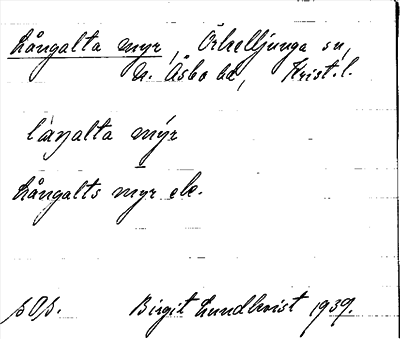 Långalta myr, Örkelljunga sn,
N. Åsbo hd, Krist. l.
laŋalta mýr
Långalts myr ek.
sOs. Birgit Lundkvist 1939.